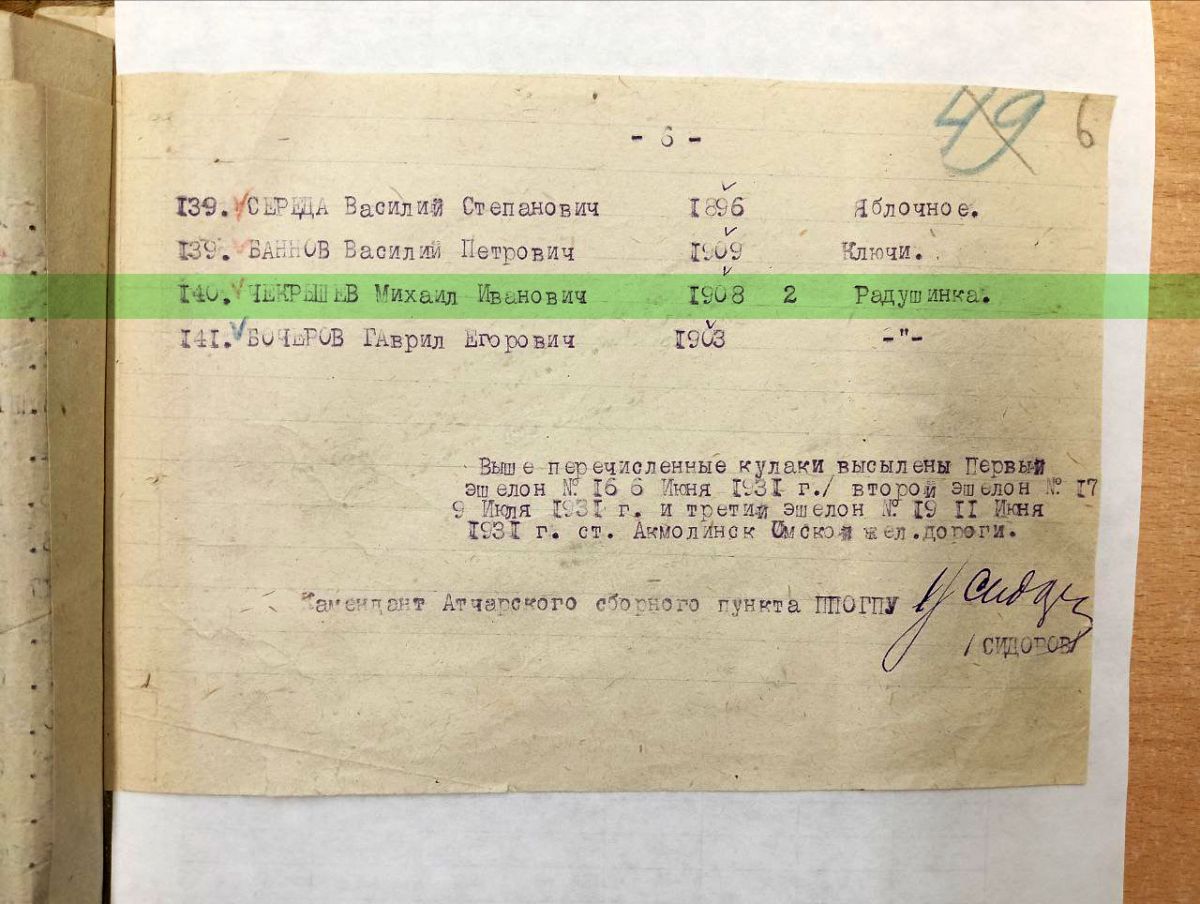 49 6
- 6 -
139. СЕРЕДА Василий Степанович 1896 Яблочное.
139. БАННОВ Василий Петрович 1909 Ключи.
140. ЧЕКРЫШЕВ Михаил Иванович 1908 2 Радушинка.
141. БОЧЕРОВ ГАврил Егорович 1903 -"-
Выше перечисленные кулаки высылены Первый
эшелон № 16 6 Июня 1931 г./ второй эшелон № 17
9 Июля 1931 г. и третий эшелон № 19 11 Июня
1931 г. ст. Акмолинск Омской жел.дороги.
Камендант Атчарского сборного пункта ППОГПУ
/СИДОРОВ/